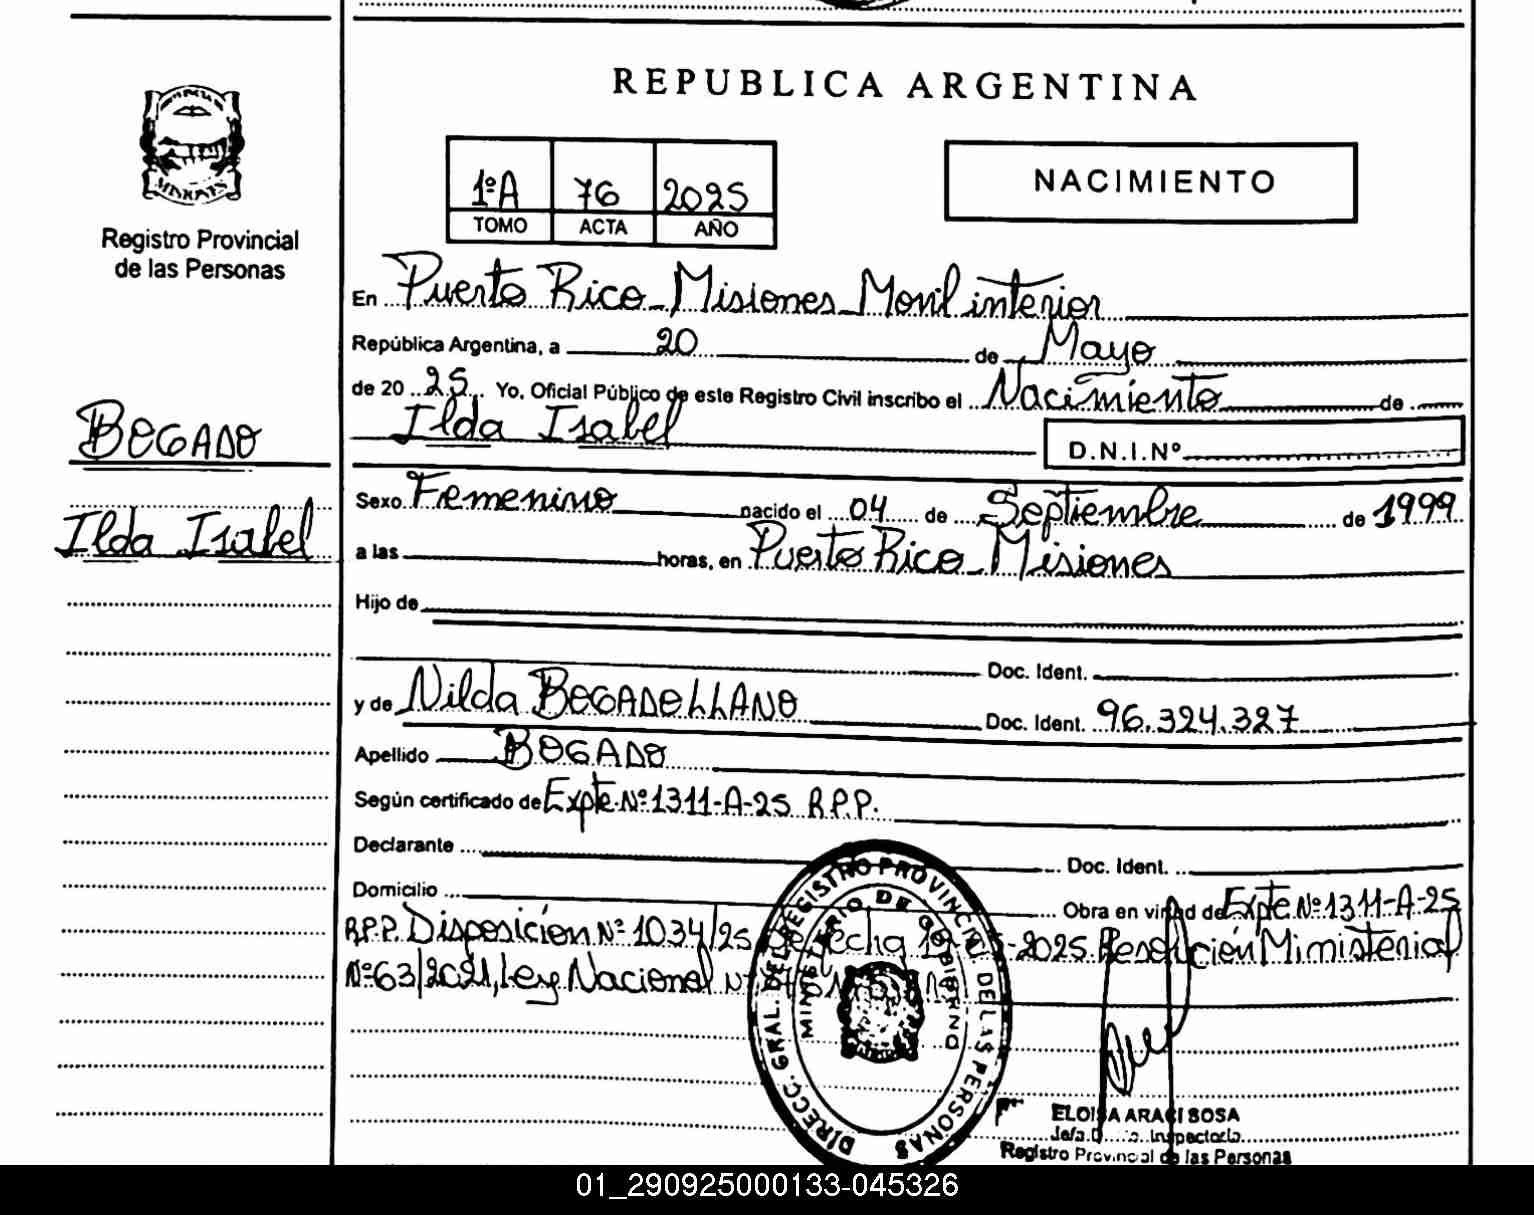 REPUBLICA ARGENTINA
MISIONES
Registro Provincial
de las Personas
1ºA 76 2025
TOMO ACTA AÑO
NACIMIENTO
En Puerto Rico - Misiones - Movil interior
República Argentina, a 20 de Mayo
de 20 25 Yo, Oficial Público de este Registro Civil inscribo el Nacimiento de
Ilda Isabel
D.N.I.Nº
BOGADO
Ilda Isabel
Sexo Femenino nacido el 04 de Septiembre de 1999
a las horas, en Puerto Rico - Misiones
Hijo de
Doc. Ident.
y de Nilda BOGADO LLANO Doc. Ident. 96.324.327
Apellido BOGADO
Según certificado de Expte. Nº 1311-A-25 R.P.P.
Declarante Doc. Ident.
Domicilio Obra en virtud de Expte Nº 1311-A-25
R.P.P. Disposición Nº 1034/25 de fecha -2025 Resolución Ministerial
Nº 63/2021, Ley Nacional
DIRECC. GRAL. DEL REGISTRO PROVINCIAL DE LAS PERSONAS
MINISTERIO DE GOBIERNO
ELOISA ARACI SOSA
Registro Provincial de las Personas
01_290925000133-045326